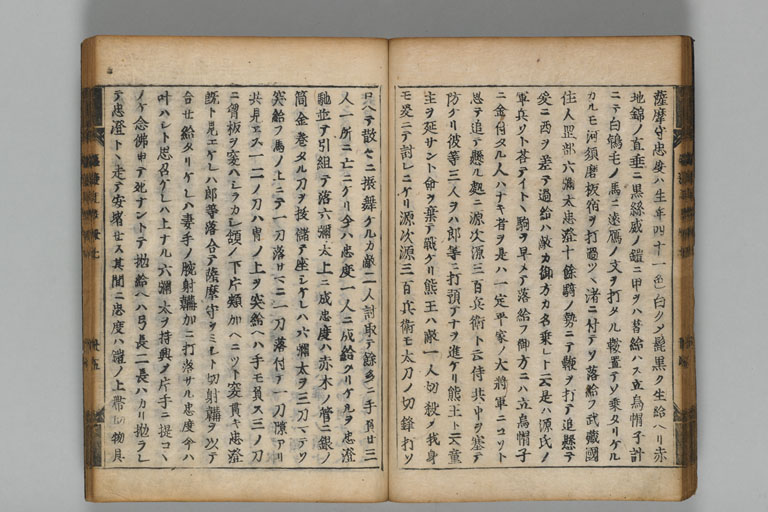 薩摩守忠度ハ生年四十一色白クメ髭黒ク生給ヘリ赤
地錦ノ直垂ニ黒糸威ノ鎧ニ甲ヲハ著給ハス立烏帽子計
ニテ白鴾毛ノ馬ニ遠雁ノ文ヲ打タル鞍置テソ乗タリケル
カルモ河須磨板宿ヲ打過ツヽ渚ニ付テソ落給フ武蔵國
住人罡部六彌太忠澄十餘騎ノ勢ニテ鞭ヲ打テ追懸テ
爰ニ西ヲ差テ過給ハ敵カ御方カ名乗レト云是ハ源氏ノ
軍兵ソト荅テイトヽ駒ヲ早メテ落給フ御方ニハ立烏帽子
ニ金付タル人ハナキ者ヲ是ハ一定平家ノ大將軍ニコソト
思テ追テ懸ル處ニ源次源三百兵衛ト云侍共中ヲ塞テ
防ケリ彼等三人ヲハ郎等ニ打預テナヲ進ケリ熊王ト云童
主ヲ延サント命ヲ棄テ戰ケリ熊王ハ敵一人切殺メ我身
モ爰ニテ討レニケリ源次源三百兵衛モ太刀ノ切鋒打ソ
ロヘテ散々ニ振舞ケルカ敵二人討取テ餘多ニ手負廿三
人一所ニ亡ニケリ今ハ忠度一人ニ成給タリケルヲ忠澄
馳並テ引組テ落六彌太上ニ成忠度ハ赤木ノ管ニ銀ノ
筒金巻タル刀ヲ抜儲テ座シケレハ六彌太ヲ三刀マテソ
突給フ馬ノ上ニテ一刀落サマニ一刀落付テ一刀隙アリ
共見エス一二ノ刀ハ冑ノ上ヲ突給ヘハ手モ負ス三ノ刀
ニ冑板ヲ突ヘシラカシ頷ノ下片頬加ヘニツト突貫キ忠澄
既ト見エケレハ郎等落合テ薩摩守ヲミシト切射鞴ヲ以テ
合セ給タリケレハ妻手ノ腕射鞴加ニ打落サル忠度今ハ
叶ハシト思召ケレハ上ナル六彌太ヲ持興メ片手ニ提コヽ
ノケ念佛申テ死ナントテ抛給ヘハ弓長二長ハカリ抛ラレ
テ忠澄トヽ走テ安堵セス其間ニ忠度ハ鎧ノ上帶切物具